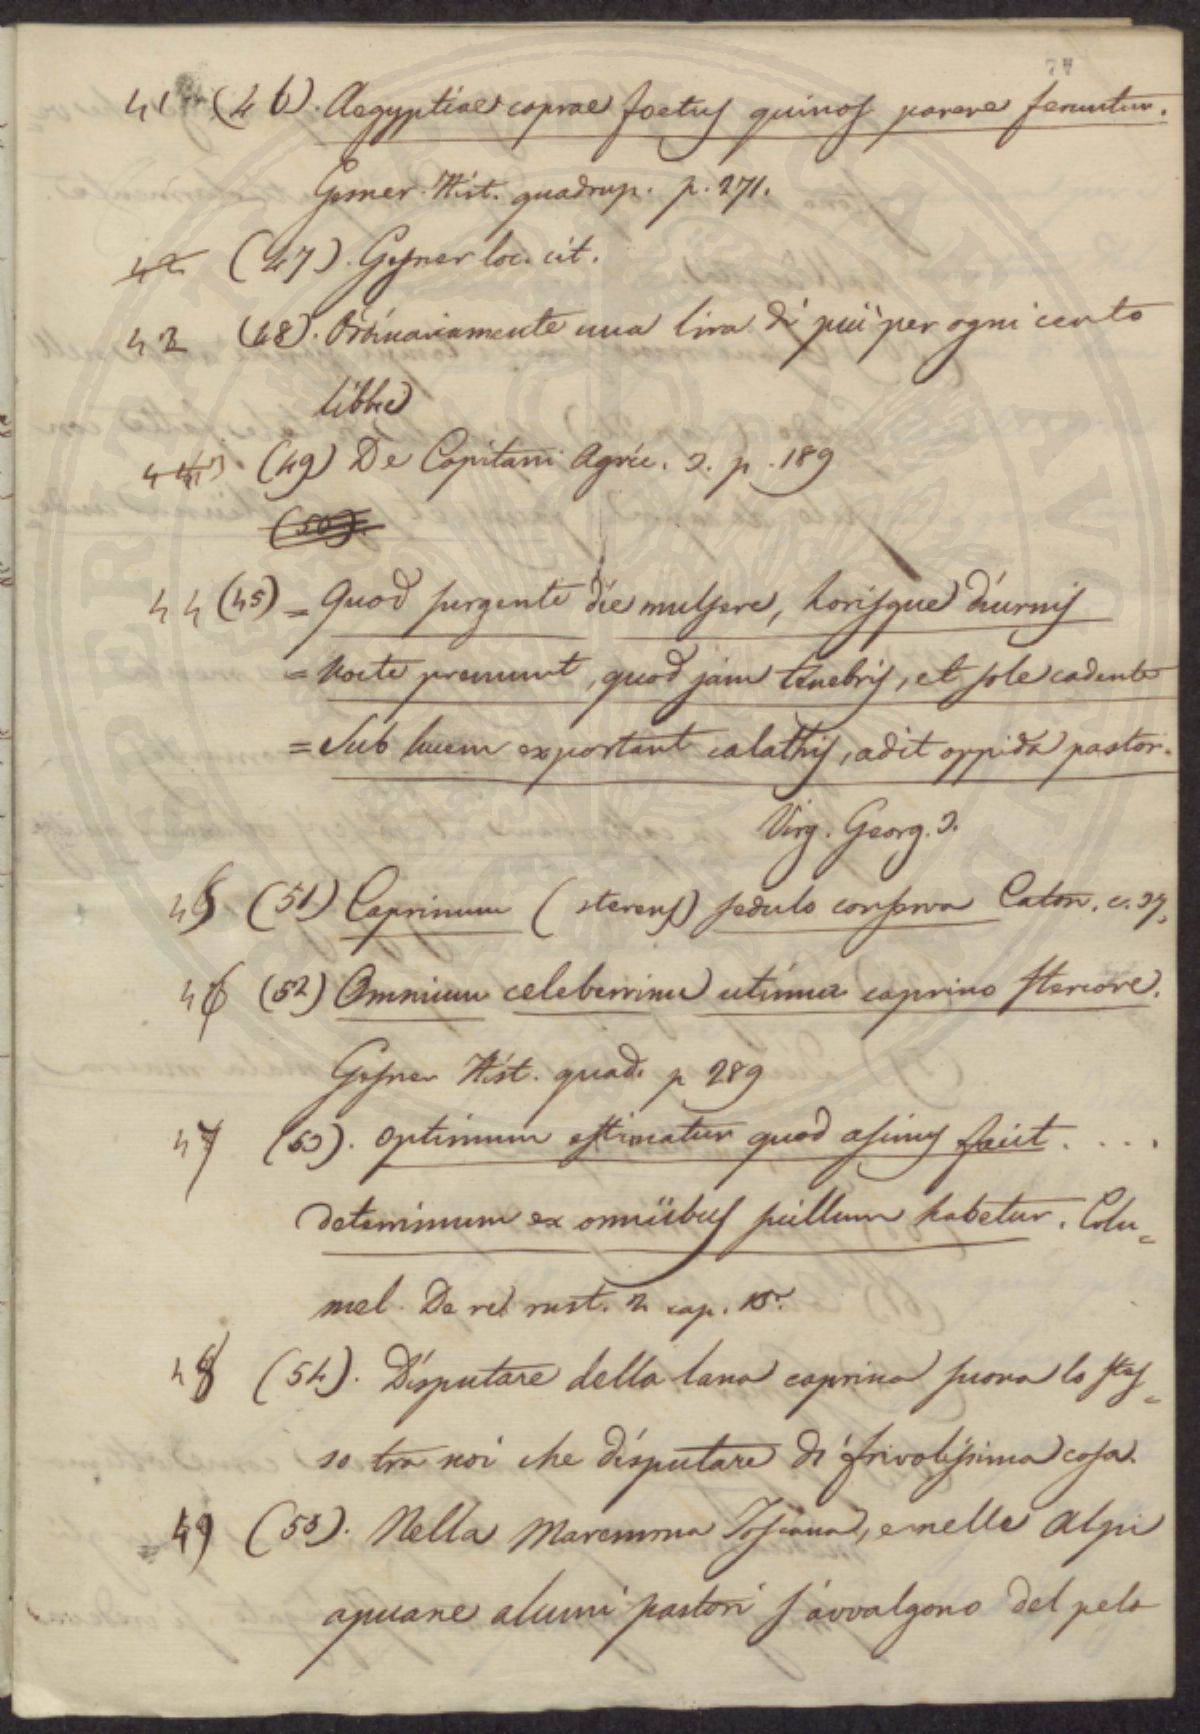 77
41 (46). Aegyptiae caprae foetus quinos parere feruntur.
Gesner. Hist. quadrup. p. 271.
42 (47). Gesner loc. cit.
43 (48). Ordinariamente una lira di più per ogni cento
libbre
44 (49) De Capitani Agric. 2. p. 189
(50)
44 (45) = Quod surgente die mulsere, horisque diurnis
= Nocte premunt, quod jam tenebris, et sole cadente
= Sub lucem exportant calathis, adit oppida pastor.
Virg. Georg. 3.
45 (51) Caprinum (stercus) sedulo conserva Caton. c. 37.
46 (52) Omnium celeberrimi utimur caprino stercore.
Gesner Hist. quad. p 289
47 (53). optimum estimatur quod asinus facit . . . .
deterrimum ex omnibus suillum habetur. Colu=
mel. De re rust. 2 cap. 15.
48 (54). Disputare della lana caprina suona lo stes=
so tra noi che disputare di frivolissima cosa.
49 (55). Nella Maremma Toscana, e nelle Alpi
apuane alcuni pastori s'avvalgono del pelo